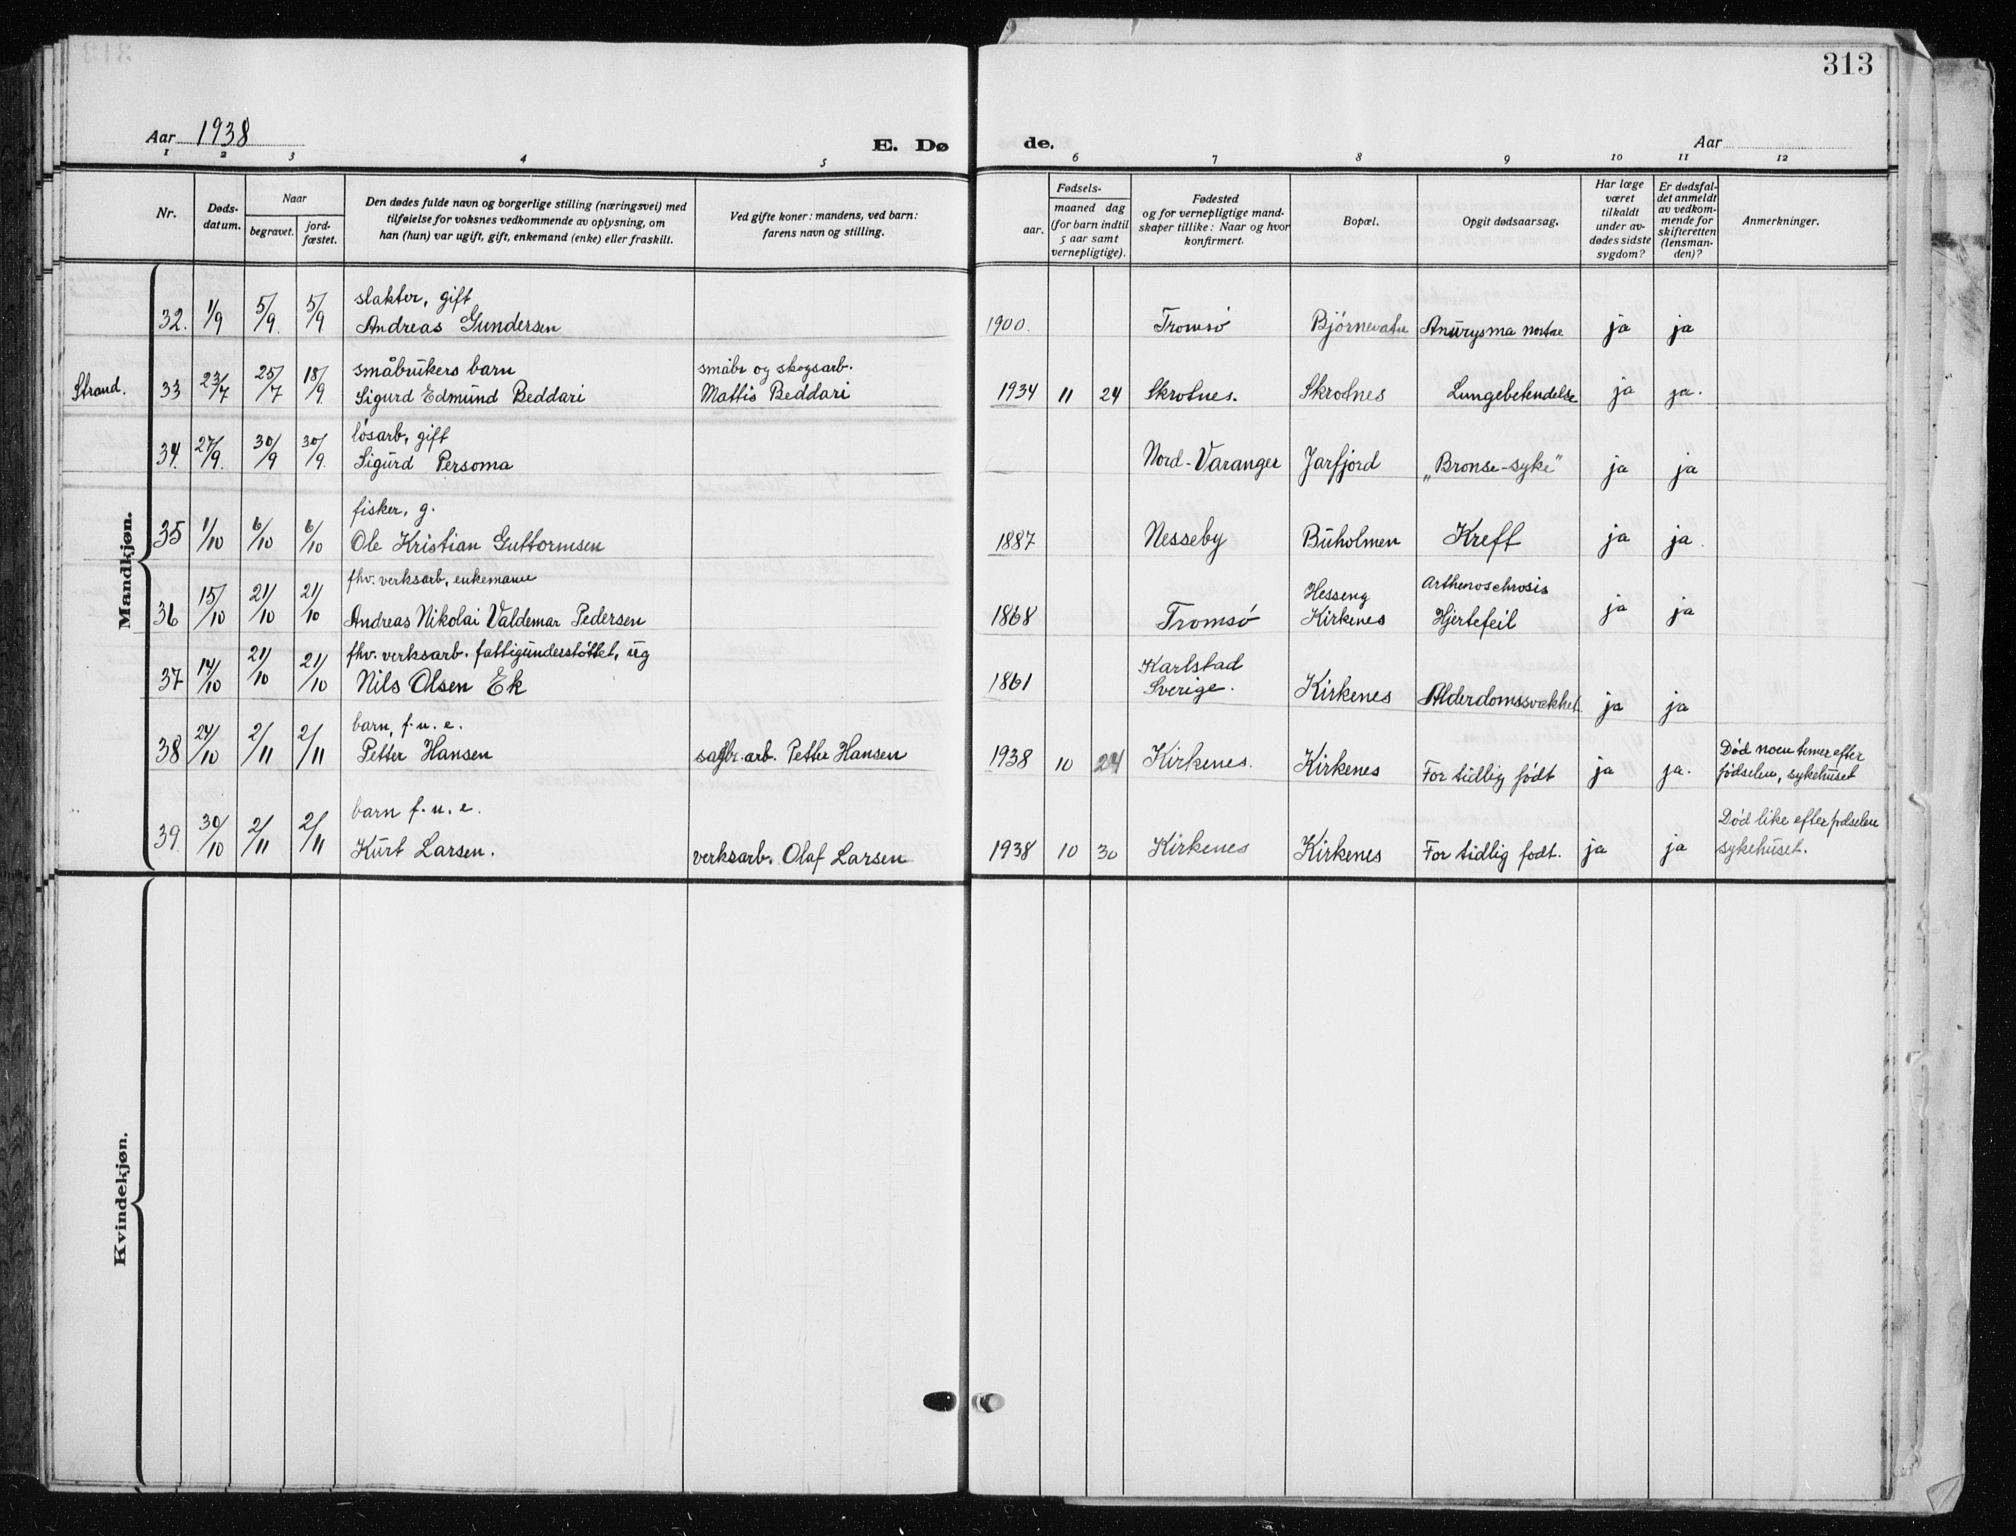 313
Aar 1938
E. Dø
de.
Aar
1 2 3 4 5 6 7 8 9 10 11 12
Nr.
Døds-
datum.
Naar
begravet.
jord-
fæstet.
Den dødes fulde navn og borgerlige stilling (næringsvei) med
tilføielse for voksnes vedkommende av oplysning, om
han (hun) var ugift, gift, enkemand (enke) eller fraskilt.
Ved gifte koner: mandens, ved barn:
farens navn og stilling.
Fødsels-
aar.
maaned dag
(for barn indtil
5 aar samt
vernepligtige).
Fødested
og for vernepligtige mand-
skaper tillike: Naar og hvor
konfirmert.
Bopæl.
Opgit dødsaarsag.
Har læge
været
tilkaldt
under av-
dødes sidste
sygdom?
Er dødsfal-
det anmeldt
av vedkom-
mende for
skifteretten
(lensman-
den)?
Anmerkninger.
Mandkjøn.
slakter, gift
32. 1/9 5/9. 5/9 Andreas Gundersen 1900. Tromsø Bjørnevatn Anurysma nortae ja ja
småbrukers barn småbr og skogsarb.
Strand. 33 23/7 25/7 18/9. Sigurd Edmund Beddari Mattis Beddari 1934 11 24 Skrotnes. Skrotnes Lungebetendelse ja ja.
løsarb, gift
34. 27/9. 30/9 30/9. Sigurd Persoma Nord-Varanger Jarfjord „Bronse-syke" ja ja
fisker, g.
35 1/10 6/10 6/10 Ole Kristian Guttormsen 1887 Nesseby Buholmen Kreft ja ja.
fhv. verksarb, enkemann Hesseng Arthenoschrosis
36 15/10 21/10 21/10 Andreas Nikolai Valdemar Pedersen 1868 Tromsø Kirkenes Hjertefeil ja ja
fhv. verksarb. fattigunderstøttet, ug Karlstad
37 14/10 21/10 21/10 Nils Olsen Ek 1861 Sverige. Kirkenes Alderdomssvakhet ja ja
barn, f.u.e. Død noen timer efter
38 24/10 2/11 2/11 Petter Hansen sagbr. arb. Petter Hansen 1938 10 24 Kirkenes. Kirkenes For tidlig født ja ja. fødselen, sykehuset
barn f.u.e. Død like efter fødselen
39. 30/10 2/11 2/11 Kurt Larsen. verksarb. Olaf Larsen 1938 10 30 Kirkenes Kirkenes For tidlig født. ja ja sykehuset.
Kvindekjøn.